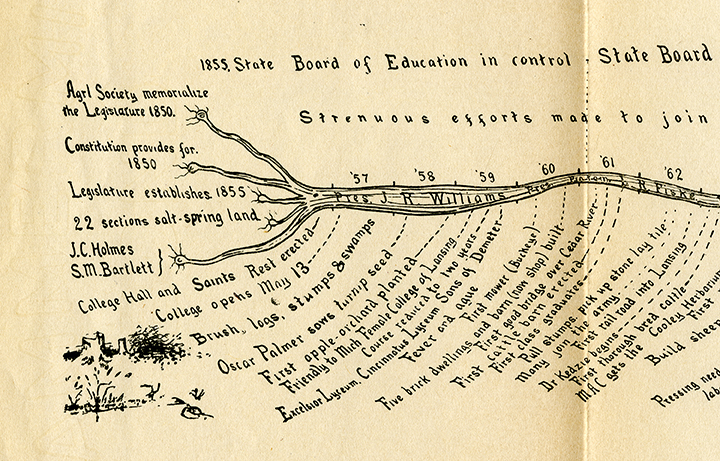 1855, State Board of Education in control State Board
Agrl Society memorialize
the Legislature 1850.
Strenuous efforts made to join
Constitution provides for.
1850
'57 '58 '59 '60 '61 '62
Legislature establishes 1855
Pres J. R. Williams Pres. L. R. Fiske
22 sections salt-spring land
J.C. Holmes
S.M. Bartlett
College Hall and Saints Rest erected
College opens May 13
Brush, logs, stumps & swamps
Oscar Palmer sows turnip seed
First apple orchard planted
Friendly to Mich Female College of Lansing
Course reduced to two years
Excelsior Lyceum, Cincinnatus Lyceum Sons of Demeter
Fever and ague
First mower (Buckeye)
Five brick dwellings and barn (now shop) built
First good bridge over Cedar River
First cattle barn erected
First class graduates
Pull stumps, pick up stone lay tile
Many join the army
First rail road into Lansing
Dr Kedzie begins
First thorough bred cattle
MAC gets the
Cooley Herbarium
First
Build shee
Pressing need
lab